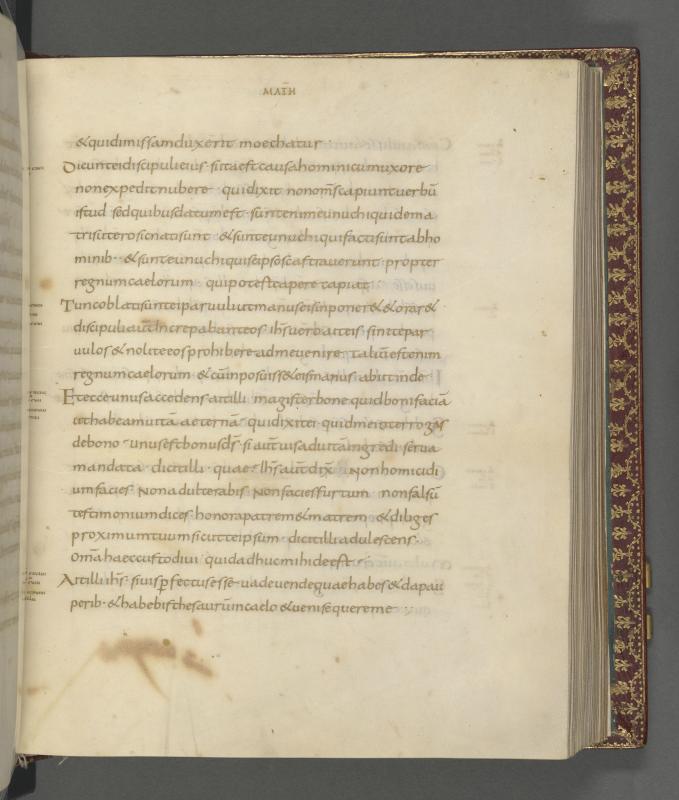 MATH
& qui dimissam duxerit moechatur
Dicunt ei discipuli eius · si ita est causa hominis cum uxore
non expedit nubere · qui dixit non om̄s capiunt uerbū
istud sed quibus datum est · sunt enim eunuchi qui de ma
tris utero sic nati sunt · & sunt eunuchi qui facti sunt ab ho
minib· · & sunt eunuchi qui se ipsos castrauerunt · propter
regnum caelorum · qui potest capere capiat
Tunc oblati sunt ei paruuli ut manus eis inponer& & orar&
discipuli aut̄ increpabant eos · ihs̄ uero ait eis · sinite par
uulos & nolite eos prohibere ad me uenire · taliū est enim
regnum caelorum · & cū inposuiss& eis manus · abiit inde
Et ecce unus accedens ait illi · magister bone quid boni faciā
ut habeam uitā aeternā · qui dixit ei · quid me interrogas
de bono · unus est bonus ds̄ · si aut̄ uis ad uitā ingredi serua
mandata · dicit illi · quae · Ihs̄ aut̄ dix̄ · Non homicidi
um facies · Non adulterabis · Non facies furtum · non falsū
testimonium dices · honora patrem & matrem · & diliges
proximum tuum sicut te ipsum · dicit illi adulescens ·
Omā haec custodiui · quid adhuc mihi deest ·
Ait illi ihs̄ · si uis ꝑfectus esse · uade uende quae habes & da pau
perib· & habebis thesaurū in caelo & ueni sequere me